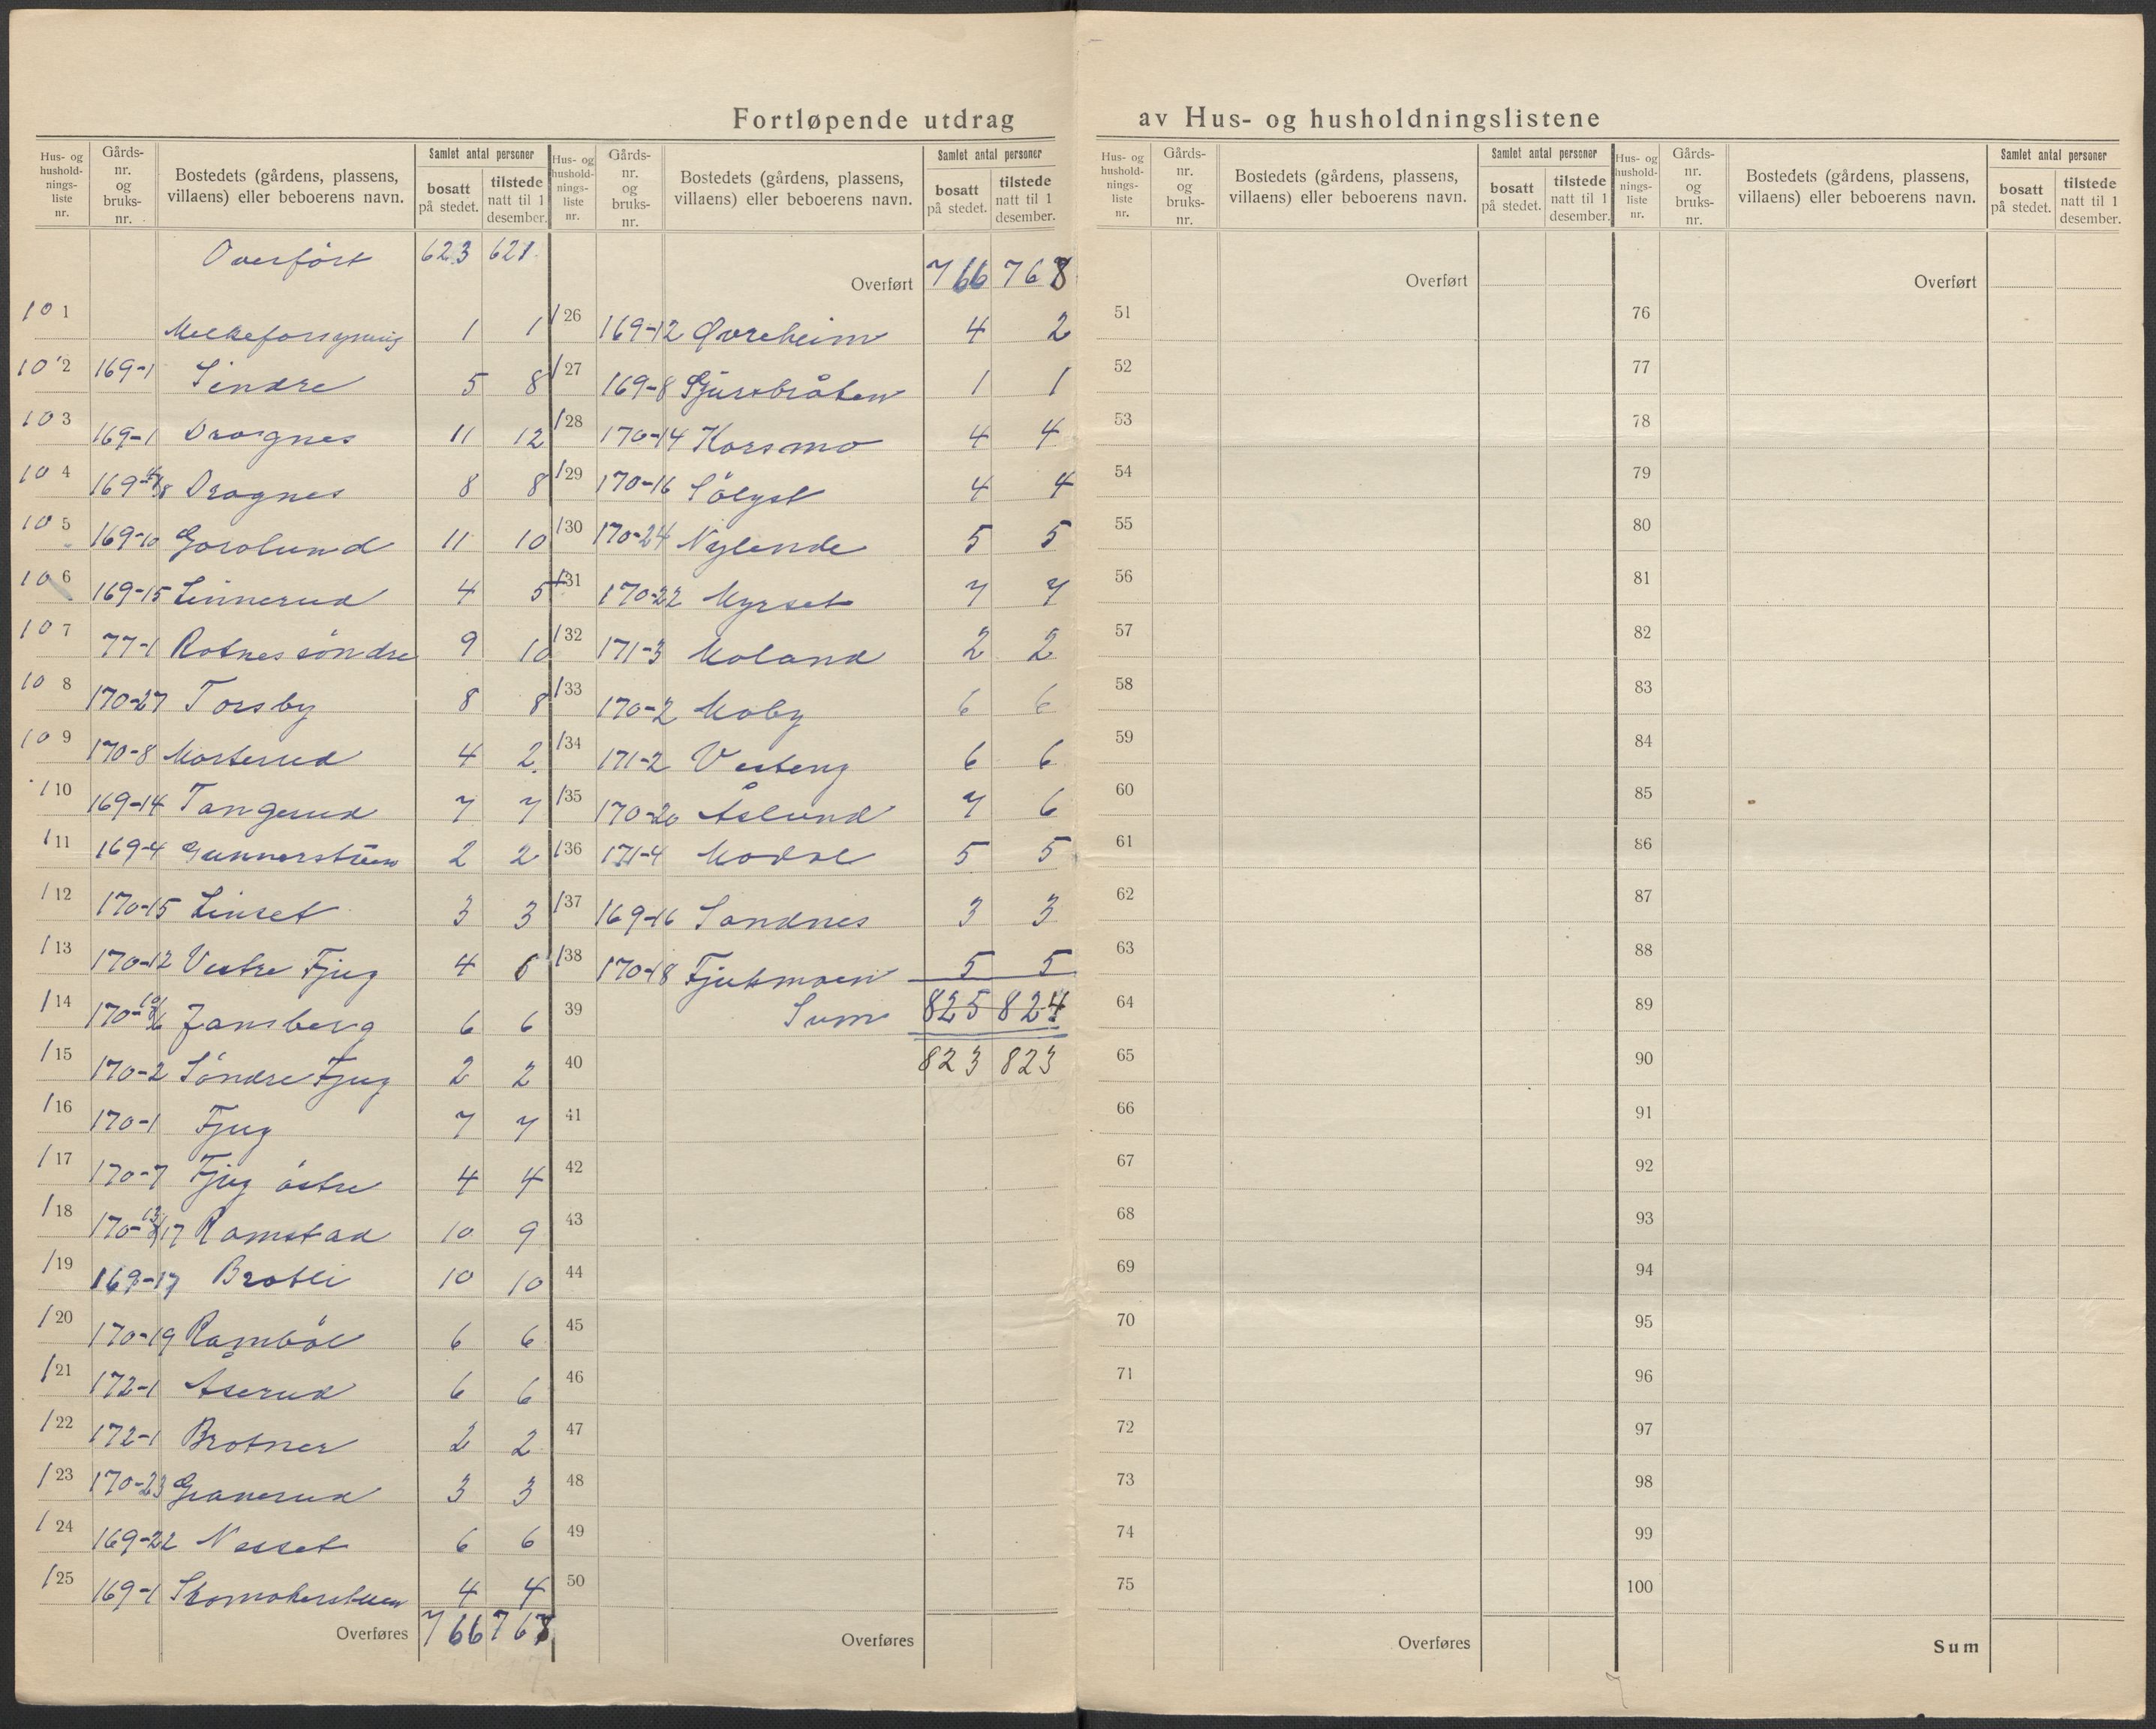 Fortløpende utdrag av Hus- og husholdningslistene
Hus- og hushold-nings-liste nr. | Gårds-nr. og bruks-nr. | Bostedets (gårdens, plassens, villaens) eller beboerens navn. | Samlet antal personer | bosatt på stedet. | tilstede natt til 1 desember.
Overført 623 621
101 Melkeforsyning 1 1
102 169-1 Sindre 5 8
103 169-1 Dragnes 11 12
104 169- Dragnes 8 8
105 169-10 Gorolund 11 10
106 169-15 Linnerud 4 5
107 77-1 Rotnes söndre 9 10
108 170-27 Torsby 8 8
109 170-8 Morterud 4 2
110 169-14 Tangerud 7 7
111 169-4 Gunnerstuen 2 2
112 170-15 Linset 3 3
113 170-12 Vestre Fjug 4 6
114 170- Jansberg 6 6
115 170-2 Söndre Fjug 2 2
116 170-1 Fjug 7 7
117 170-7 Fjug östre 4 4
118 170-13/17 Ramstad 10 9
119 169-17 Bratli 10 10
120 170-19 Ramböl 6 6
121 172-1 Åserud 6 6
122 172-1 Brotner 2 2
123 170-23 Granerud 3 3
124 169-22 Nesset 6 6
125 169-1 Skomakerstuen 4 4
Overføres 766 768
Hus- og hushold-nings-liste nr. | Gårds-nr. og bruks-nr. | Bostedets (gårdens, plassens, villaens) eller beboerens navn. | Samlet antal personer | bosatt på stedet. | tilstede natt til 1 desember.
Overført 766 768
126 169-12 Øvreheim 4 2
127 169-8 Sjursbråten 1 1
128 170-14 Korsmo 4 4
129 170-16 Sölyst 4 4
130 170-24 Nylende 5 5
131 170-22 Myrset 7 7
132 171-3 Moland 2 2
133 170-2 Moby 6 6
134 171-2 Vesteng 6 6
135 170-20 Åslund 7 6
136 171-4 5 5
137 169-16 Sandnes 3 3
138 170-18 Fjukmoen 5 5
39 Sum 825 824
40 823 823
41
42
43
44
45
46
47
48
49
50
Overføres
Hus- og hushold-nings-liste nr. | Gårds-nr. og bruks-nr. | Bostedets (gårdens, plassens, villaens) eller beboerens navn. | Samlet antal personer | bosatt på stedet. | tilstede natt til 1 desember.
Overført
51
52
53
54
55
56
57
58
59
60
61
62
63
64
65
66
67
68
69
70
71
72
73
74
75
Overføres
Hus- og hushold-nings-liste nr. | Gårds-nr. og bruks-nr. | Bostedets (gårdens, plassens, villaens) eller beboerens navn. | Samlet antal personer | bosatt på stedet. | tilstede natt til 1 desember.
Overført
76
77
78
79
80
81
82
83
84
85
86
87
88
89
90
91
92
93
94
95
96
97
98
99
100
Sum